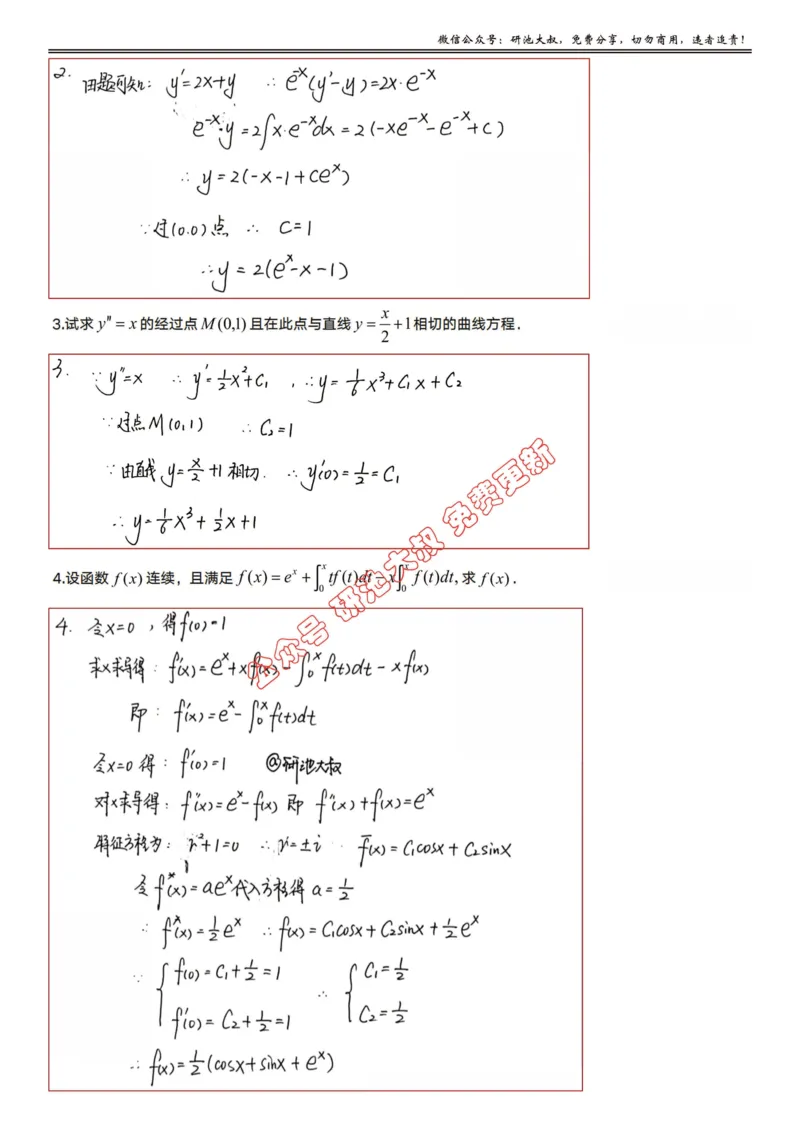 微信公众号：研池大叔，免费分享，切勿商用，违者追责！
2. 由题可知: y'=2x+y ∴ e^{-x}(y'-y)=2x·e^{-x}
e^{-x}·y=2∫x·e^{-x}dx=2(-xe^{-x}-e^{-x}+C)
∴ y=2(-x-1+Ce^x)
∵过(0.0)点 ∴ C=1
∴y=2(e^x-x-1)
3.试求 y"=x的经过点M(0,1)且在此点与直线 y=x/2+1相切的曲线方程.
3. ∵y"=x ∴y'=1/2x²+C₁ ,∴y=1/6x³+C₁x+C₂
∵过点M(0,1) ∴C₂=1
∵由直线y=x/2+1相切. ∴y'(0)=1/2=C₁
∴y=1/6x³+1/2x+1
4.设函数 f(x)连续，且满足 f(x)=e^x+∫₀^x tf(t)dt-x∫₀^x f(t)dt,求 f(x).
公众号 研池大叔 免费更新
4. 令x=0 ,得f(0)=1
求x求导得: f'(x)=e^x+xf(x)-∫₀^x f(t)dt-xf(x)
即: f'(x)=e^x-∫₀^x f(t)dt
令x=0得: f'(0)=1 @研池大叔
对x求导得: f"(x)=e^x-f(x) 即 f"(x)+f(x)=e^x
特征方程为: r²+1=0 ∴r=±i f̄(x)=C₁cosx+C₂sinx
令f*(x)=ae^x代入方程得 a=1/2
∴ f*(x)=1/2e^x ∴f(x)=C₁cosx+C₂sinx+1/2e^x
∵ { f(0)=C₁+1/2=1 { C₁=1/2
f'(0)=C₂+1/2=1 ∴ C₂=1/2
∴f(x)=1/2(cosx+sinx+e^x)